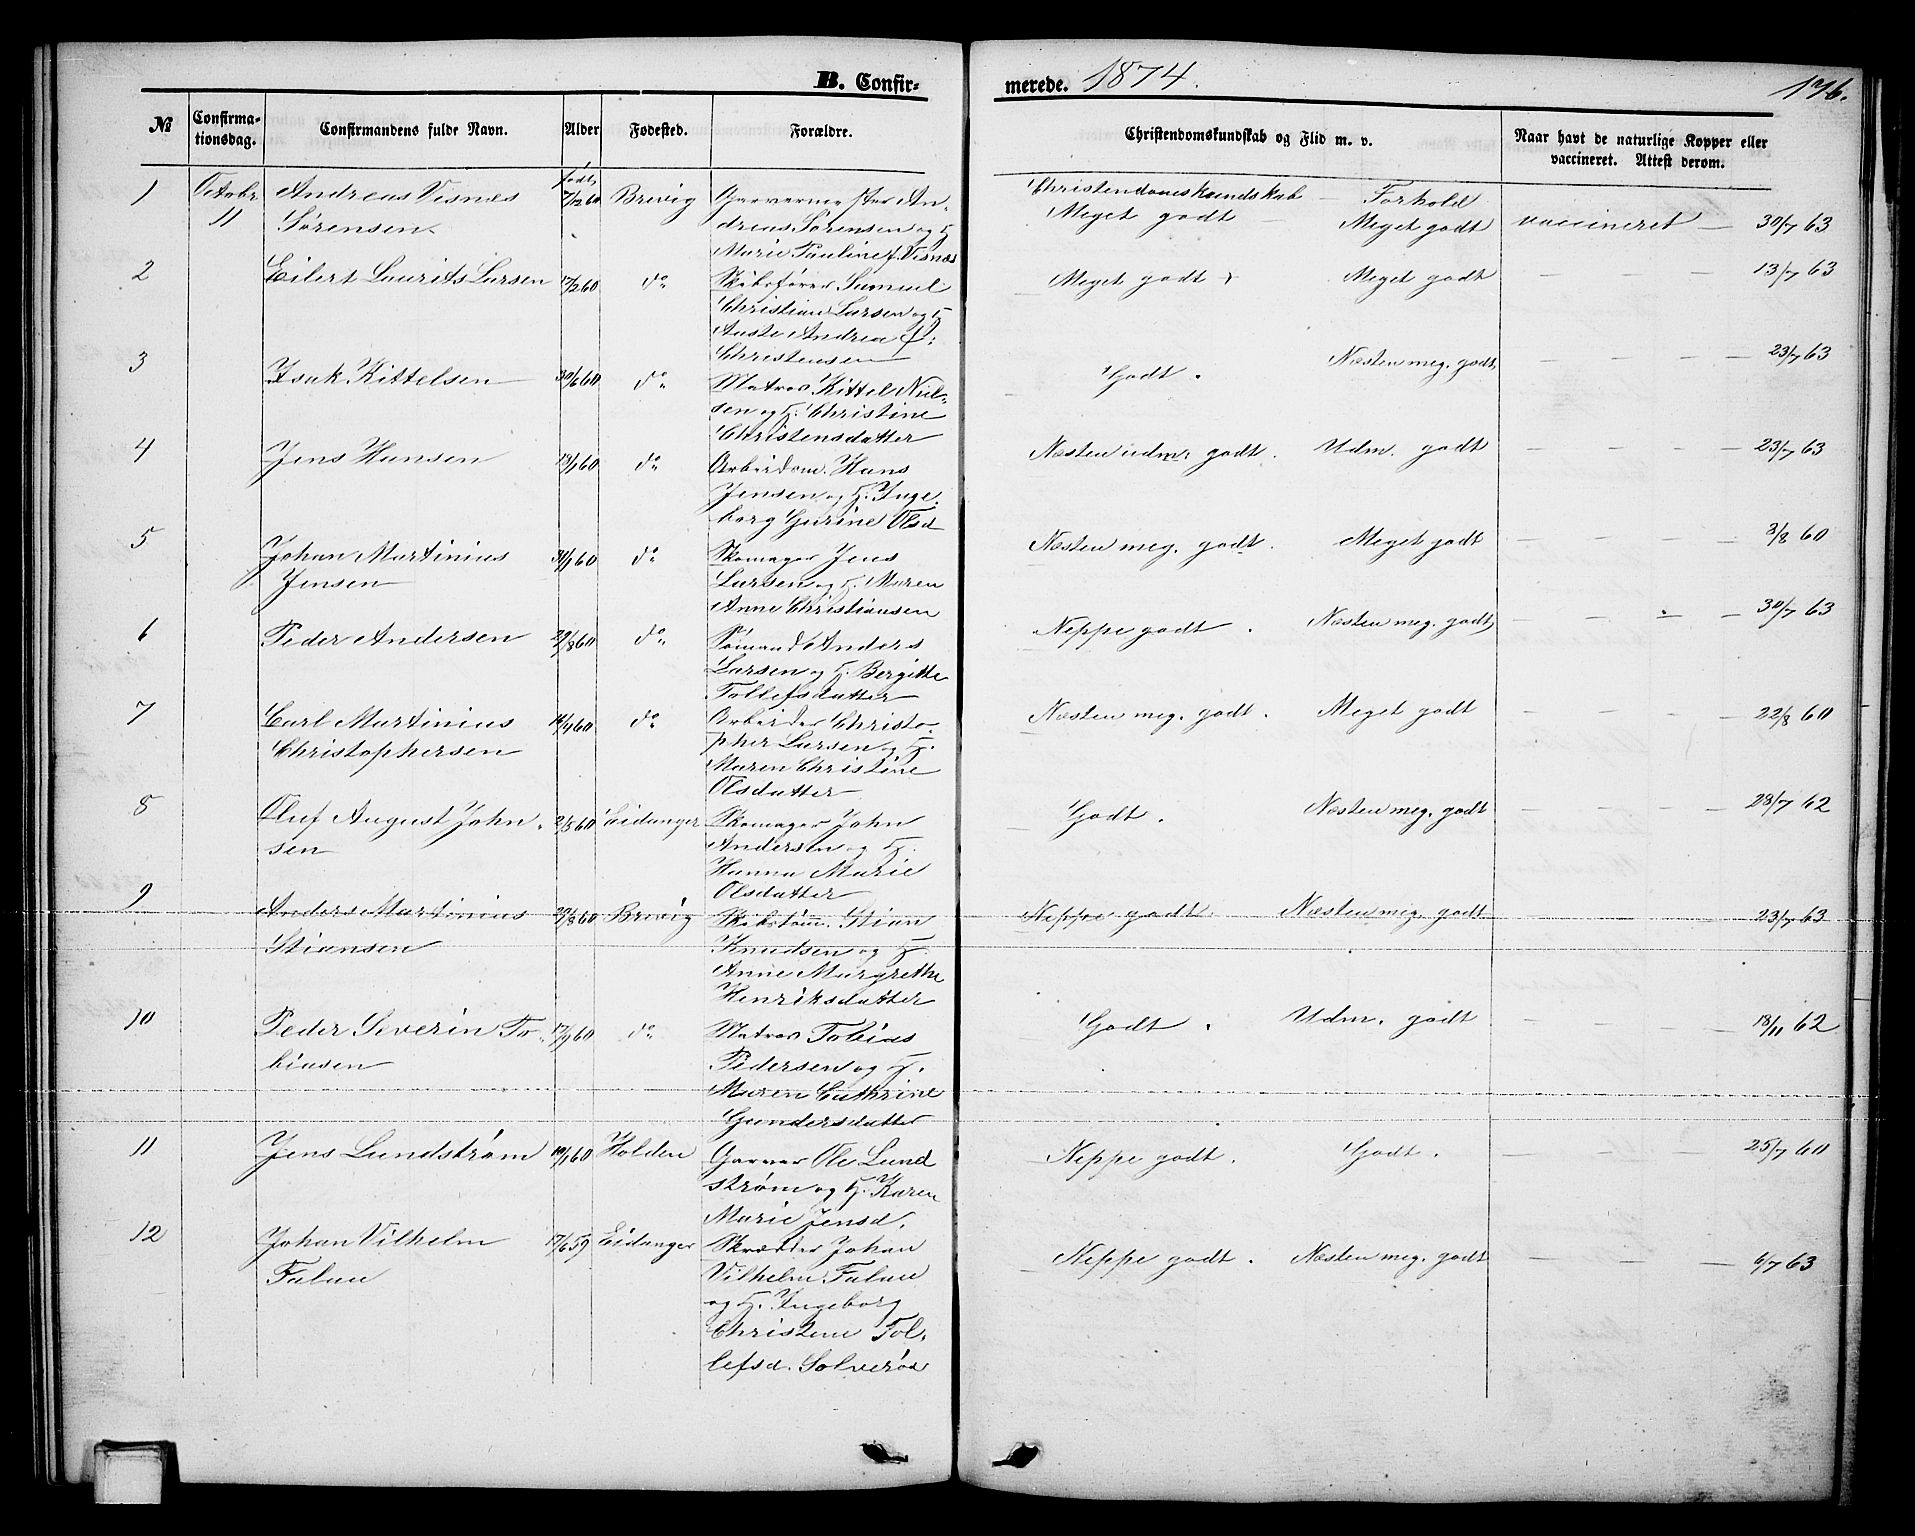 B. Confir-
merede. 1874.
176.
№ Confirma-tionsdag. Confirmandens fulde Navn. Alder Fødested. Forældre. Christendomskundskab og Flid m. v. Naar havt de naturlige Kopper eller vaccineret. Attest derom.
født
1 Octobr Andreas Visnæs 7/12 60 Brevig Garvermester An- Christendomskundskab Forhold
11 Sørensen dreas Sørensen og H Meget godt Meget godt vaccineret — 30/7 63
Marie Pauline f. Visnæs
2 Eilert Laurits Larsen 17/2 60 do Skibsfører Samuel Meget godt Meget godt — — — 13/7 63
Christian Larsen og H
Aaste Andrea
Christensen
3 Isak Kittelsen 30/6 60 do Matros Kittel Niel- Godt. Næsten meg. godt — — — 23/7 63
sen og H. Christine
Christensdatter
4 Jens Hansen 19/1 60 do Arbeidsm. Hans Næsten udm. godt. Udm. godt — — — 23/7 63
Jensen og H. Inge-
borg Gurine Olsd
5 Johan Martinius 31/1 60 do Skomager Jens Næsten meg. godt. Meget godt — — — 3/8 60
Jensen Larsen og H. Maren
Anne Christiansen
6 Peder Andersen 29/8 60 do Sømand Anders Neppe godt. Næsten meg. godt — — — 30/7 63
Larsen og H. Bergitte
Tollefsdatter
7 Carl Martinius 14/4 60 do Arbeider Christo- Næsten meg. godt. Meget godt — — — 22/8 60
Christophersen pher Larsen og H.
Maren Christine
Olsdatter
8 Oluf August John- 2/5 60 Eidanger Skomager John Godt. Næsten meg. godt — — — 28/7 62
sen Andersen og H.
Hanna Marie
Olsdatter
9 Anders Martinius 29/8 60 Brevig Skibstøm. Stian Neppe godt. Næsten meg. godt — — — 23/7 63
Stiansen Knudsen og H.
Anne Margrethe
Henriksdatter
10 Peder Severin To- 17/9 60 do Matros Tobias Godt. Udm. godt — — — 18/11 62
biasen Pedersen og H.
Maren Cathrine
Gundersdatter
11 Jens Lundstrøm 19/1 60 Holden Garver Ole Lund Neppe godt. Godt. — — — 25/7 60
strøm og H. Karen
Marie Jensd.
12 Johan Vilhelm 17/6 59 Eidanger Skrædder Johan Neppe godt. Næsten meg. godt — — — 6/7 63
Falau Vilhelm Falau
og H. Ingeborg
Christene Tol-
lefsd. Solverød